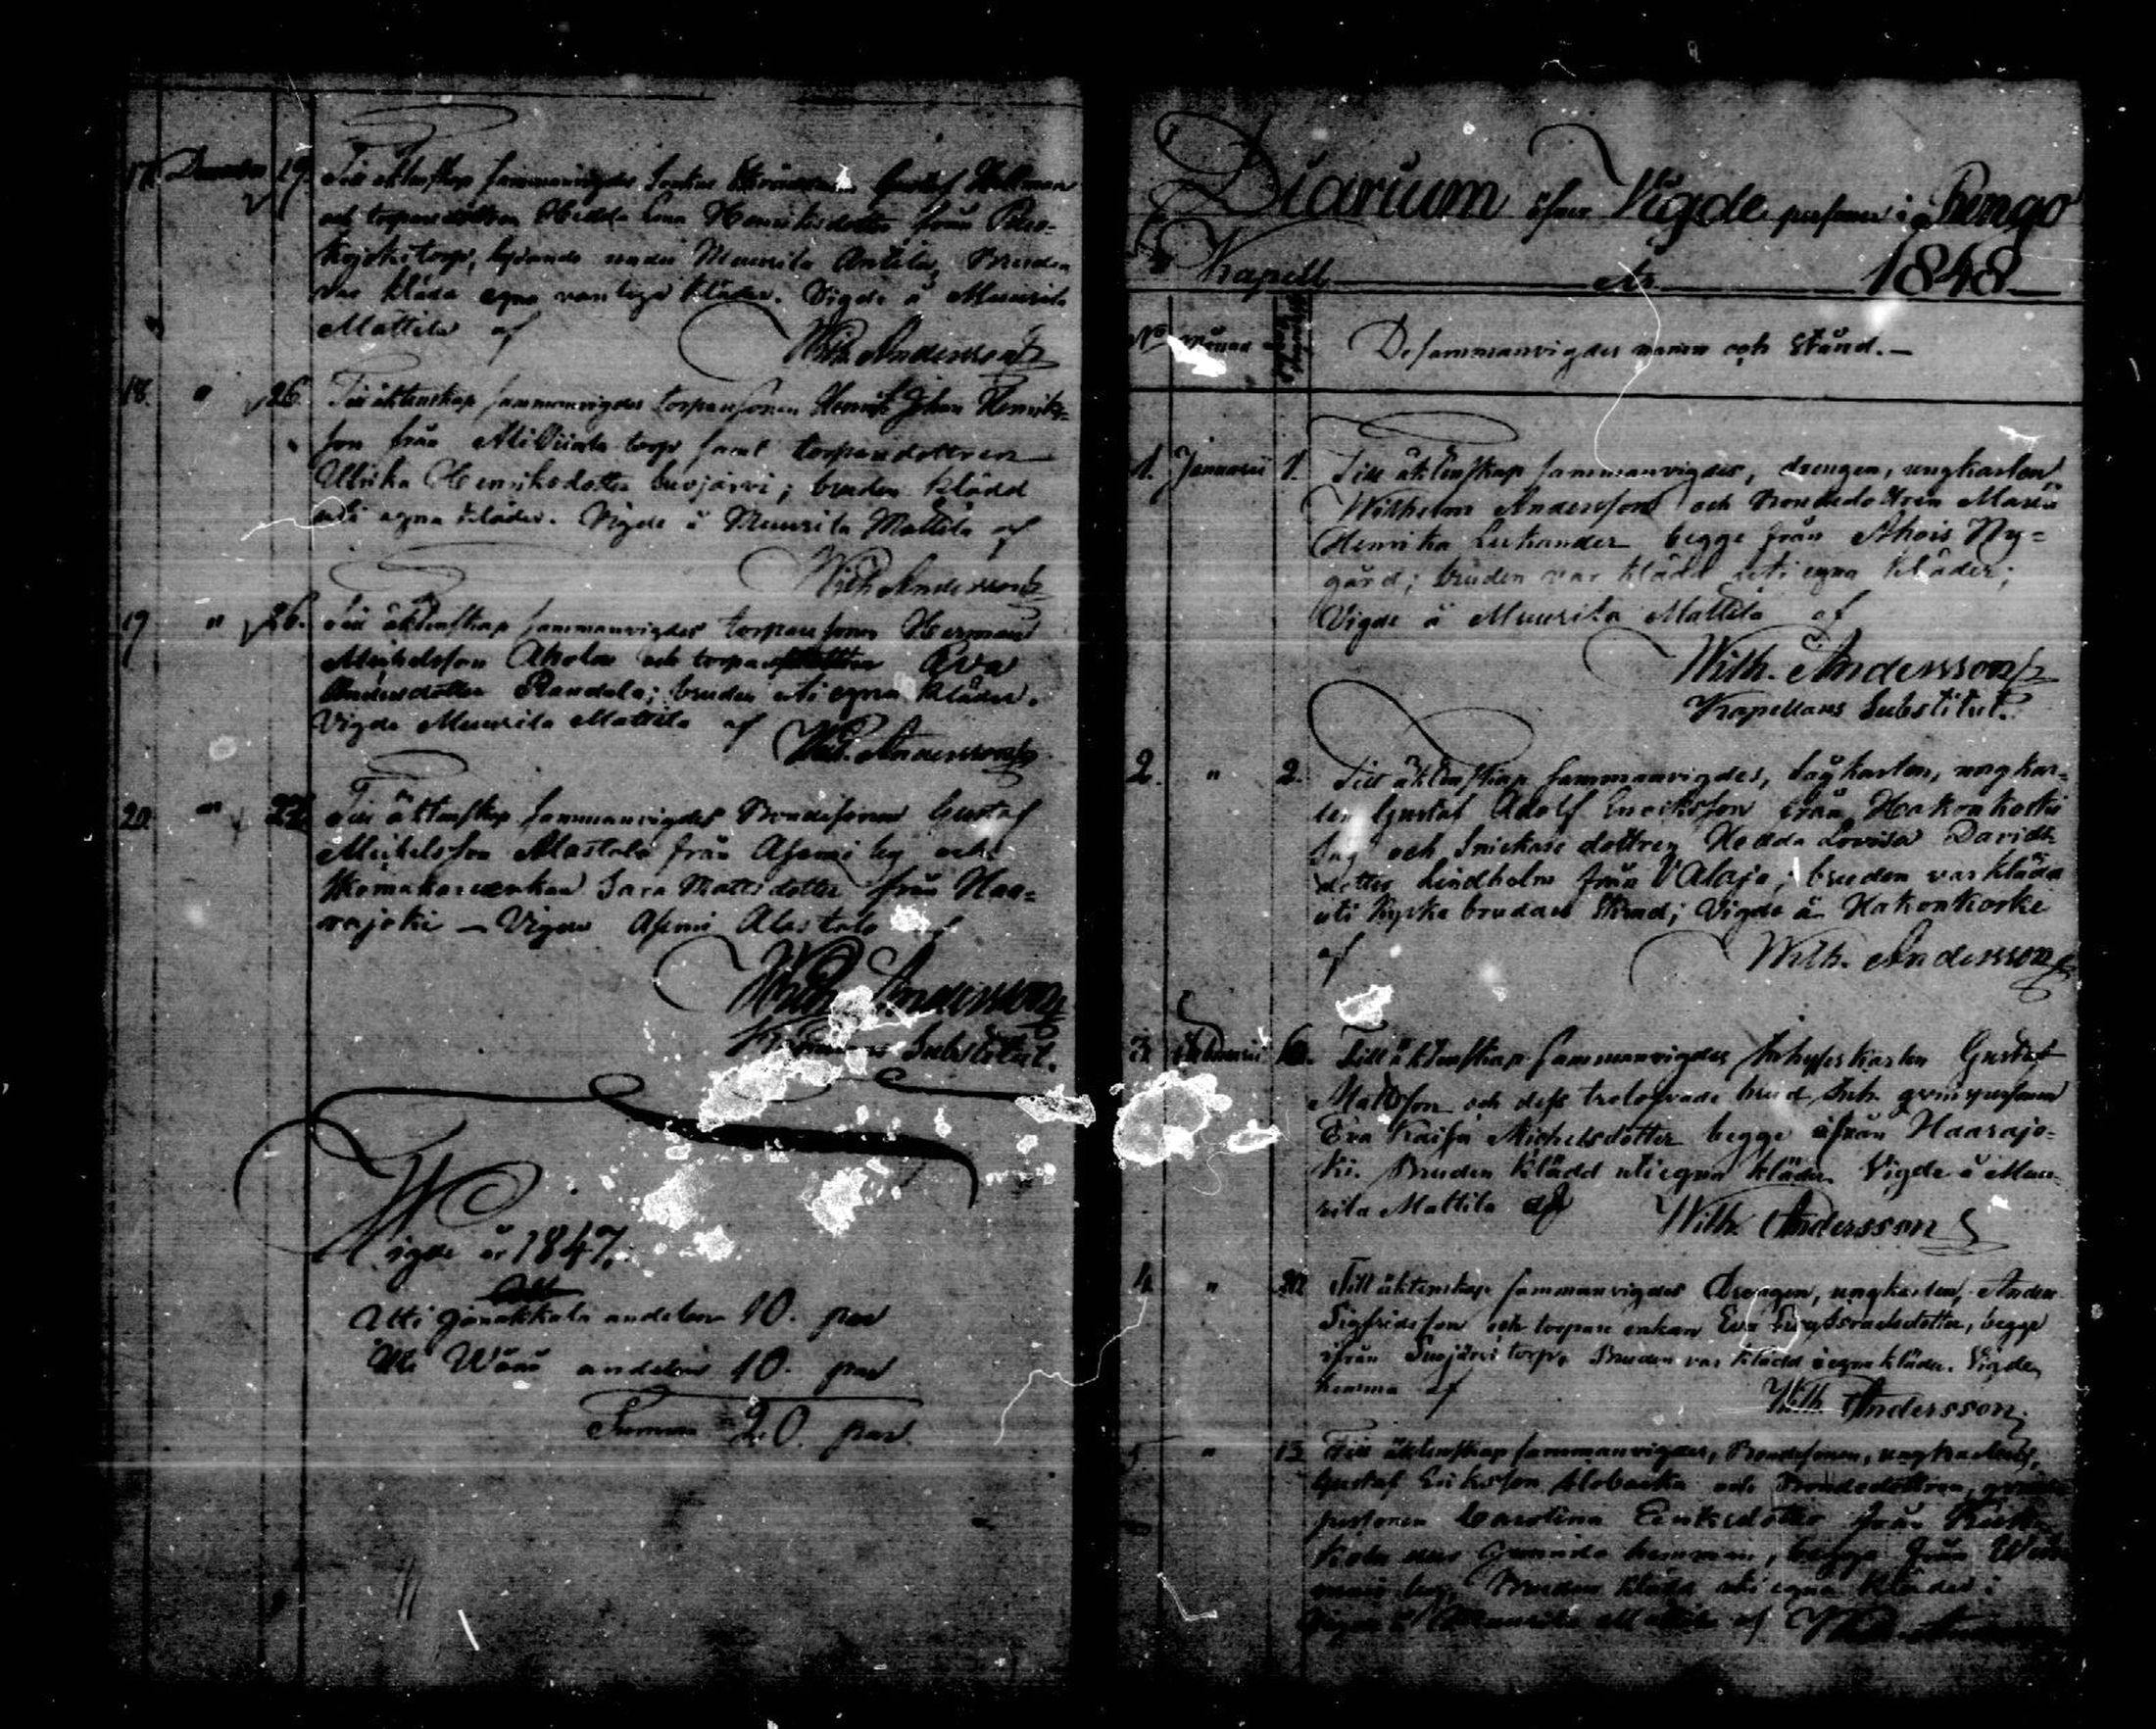 17. December 19. Till äktenskap sammanvigdes Gustaf Hellman
och torparedottren Hedda Lena Henriksdotter från
torp, lydande under Muurila Anttila, Bruden
var klädd egna vanliga kläder. Vigde å Muurila
Mattila af
Wilh. Andersson
18. " 26. Till äktenskap sammanvigdes torparesonen Henrik Johan Henriks-
son från torp samt torparedottren
Ulrika Henriksdotter Suojärvi; bruden klädd
uti egna kläder. Vigde å Muurila Mattila af
Wilh. Andersson
19 " 26. Till äktenskap sammanvigdes torparesonen Herman
Michelsson Ahola och Eva
Andersdotter Randala; bruden uti egna kläder.
Vigde Muurila Mattila af
Wilh. Andersson
20. " 27 Till äktenskap sammanvigdes Bondesonen Gustaf
Michelsson Alastalo från Asemi by och
Skomakareenkan Sara Mattsdotter från Haa-
rajoki — Vigde Asemi Alastalo af
Wilh. Andersson
Substitut.
Wigde år 1847.
Uti Janakkala andelen 10. par
Uti Wånå andelen 10. par
Summa 20. par.
Diarium öfver Vigde personer i Rengo
Kapell År 1848
No Månad De sammanvigdes namn och Stånd.—
1. Januarii 1. Till äktenskap sammanvigdes, drengen, ungkarlen,
Wilhelm Andersson och Bondedottren Maria
Henrika Lukander begge från Ahois Ny-
gård; bruden var klädd uti egna kläder;
Vigde å Muurila Mattila af
Wilh. Andersson
Kapellans Substitut.
2. " 2. Till äktenskap sammanvigdes, Sågkarlen, ungkar-
len Gustaf Adolf Ericksson från Hakonkoski
Såg och Snickare dottren Hedda Lovisa Davids-
dotter Lindholm från Alaje; bruden var klädd
uti Kyrko brudare skrud; Vigde å Hakonkoski
af Wilh. Andersson
3. Februarii Till äktenskap sammanvigdes Inhyseskarlen Gustaf
Mattsson och dess trolofvade brud Inh. qvinspersonen
Eva Kaisa Michelsdotter begge ifrån Haarajo-
ki. Bruden klädd uti egna kläder. Vigde å Muu-
rila Mattila af Wilh. Andersson
4. " 20 Till äktenskap sammanvigdes Drengen, ungkarlen, Anders
Sigfridsson och torpare enkan Eva Israelsdotter, begge
ifrån Suojärvi torp. Bruden var klädd i egna kläder. Vigde
hemma af Wilh. Andersson
5. " 13 Till äktenskap sammanvigdes, Bondesonen, ungkarlen,
Gustaf Eriksson Alobacka och Bondedottren,
personen Carolina Eriksdotter från
hemman, begge från
by. Bruden klädd uti egna kläder;
Vigde å Muurila Mattila af